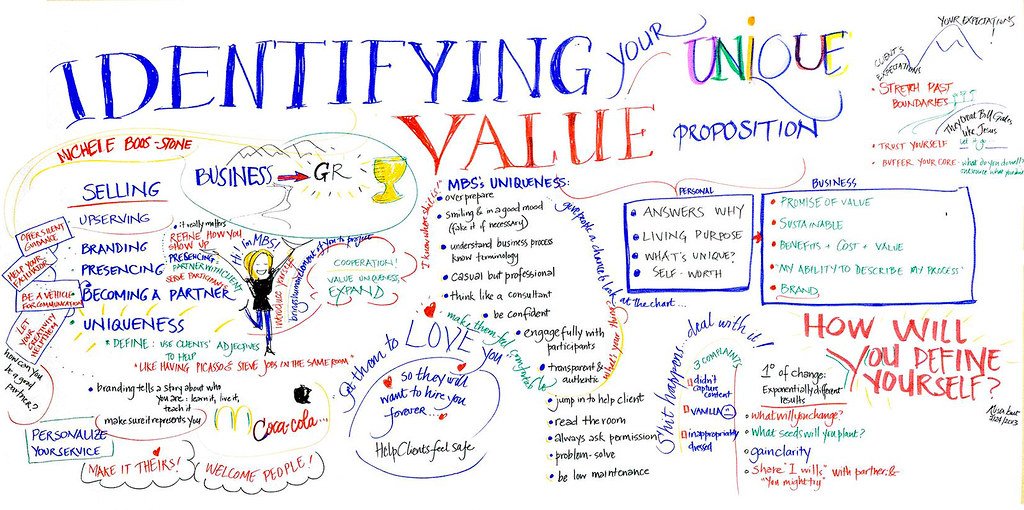 IDENTIFYING YOUR UNIQUE
VALUE PROPOSITION
YOUR EXPECTATIONS!
CLIENT'S
EXPECTATIONS
• STRETCH PAST
BOUNDARIES
They treat Bill Gates
like Jesus
let it go
• TRUST YOURSELF
• BUFFER YOUR CORE - what do you do well?
MICHELE BOOS-STONE
BUSINESS → GR
SELLING
UPSERVING
BRANDING
PRESENCING
BECOMING A PARTNER
UNIQUENESS
* DEFINE: USE CLIENTS' ADJECTIVES
TO HELP
"LIKE HAVING PICASSO & STEVE JOBS IN THE SAME ROOM"
• it really matters
REFINE HOW YOU
SHOW UP
PRESENCING:
PARTNER WITH CLIENT
SERVE PARTICIPANTS
Hi I'm MBS!
introduce yourself
brings human element of you to project
COOPERATION!
VALUE UNIQUENESS,
EXPAND
OFFER SILENT
GUIDANCE
HELP YOUR
FACILITATOR
BE A VEHICLE
FOR COMMUNICATION
LET
YOUR
CREATIVITY
HELP THEM
How can you
be a good
partner?
• branding tells a story about who
you are - learn it, live it,
teach it
make sure it represents you
Coca-Cola...
PERSONALIZE
YOUR SERVICE
MAKE IT THEIRS!
WELCOME PEOPLE!
MBS's UNIQUENESS:
• over prepare
• smiling & in a good mood
(fake it if necessary)
• understand business process
know terminology
• casual but professional
• think like a consultant
• be confident
• engage fully with
participants
• transparent &
authentic
• jump in to help client
• read the room
• always ask permission
• problem-solve
• be low maintenance
I know where shit is
give people a chance to look at the chart...
what's your
make them feel comfortable
Get them to LOVE you
so they will
want to hire you
forever...
Help Clients feel safe
PERSONAL
• ANSWERS WHY
• LIVING PURPOSE
• WHAT'S UNIQUE?
• SELF-WORTH
BUSINESS
• PROMISE OF VALUE
• SUSTAINABLE
• BENEFITS + COST + VALUE
• "MY ABILITY TO DESCRIBE MY PROCESS"
• BRAND
Shit happens... deal with it!
3 COMPLAINTS
didn't
capture
content
VANILLA
inappropriately
dressed
1° of change:
Exponentially different
results
• what will you change?
• What seeds will you plant?
• gain clarity
• Share "I will's" with partner &
"You might try"
HOW WILL
YOU DEFINE
YOURSELF?